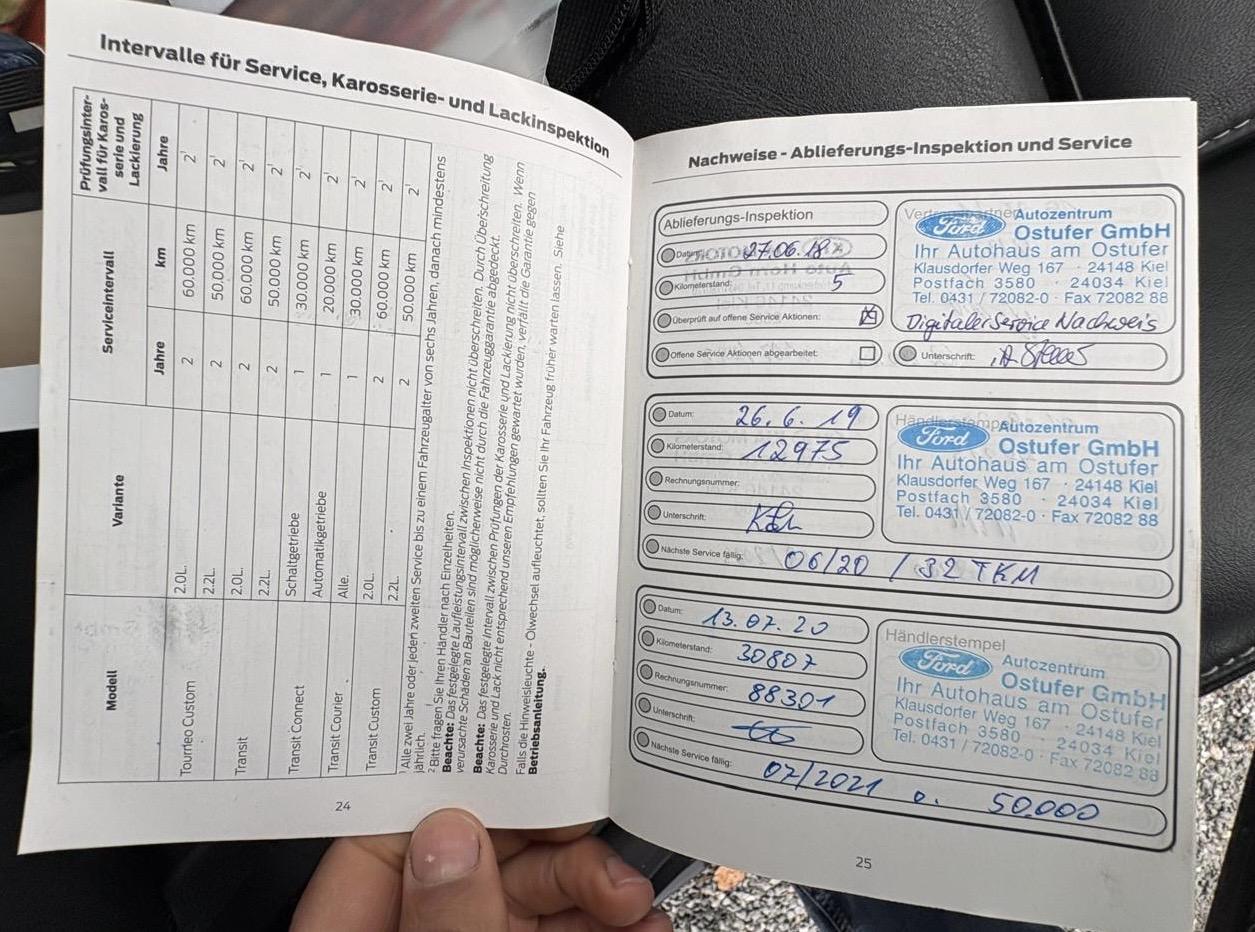 Intervalle für Service, Karosserie- und Lackinspektion
Modell
Variante
Serviceintervall
Prüfungsinter-
vall für Karos-
serie und
Lackierung
Jahre
km
Jahre
Tourneo Custom
2.0L. 2 60.000 km 2¹
2.2L. 2 50.000 km 2¹
Transit
2.0L. 2 60.000 km 2¹
2.2L. 2 50.000 km 2¹
Transit Connect
Schaltgetriebe 1 30.000 km 2¹
Automatikgetriebe 1 20.000 km 2¹
Transit Courier
Alle. 1 30.000 km 2¹
Transit Custom
2.0L. 2 60.000 km 2¹
2.2L. 2 50.000 km 2¹
¹ Alle zwei Jahre oder jeden zweiten Service bis zu einem Fahrzeugalter von sechs Jahren, danach mindestens
jährlich.
² Bitte fragen Sie Ihren Händler nach Einzelheiten.
Beachte: Das festgelegte Laufleistungsintervall zwischen Inspektionen nicht überschreiten. Durch Überschreitung
verursachte Schäden an Bauteilen sind möglicherweise nicht durch die Fahrzeuggarantie abgedeckt.
Beachte: Das festgelegte Intervall zwischen Prüfungen der Karosserie und Lackierung nicht überschreiten. Wenn
Karosserie und Lack nicht entsprechend unseren Empfehlungen gewartet wurden, verfällt die Garantie gegen
Durchrosten.
Falls die Hinweisleuchte - Ölwechsel aufleuchtet, sollten Sie Ihr Fahrzeug früher warten lassen. Siehe
Betriebsanleitung.
24
Nachweise - Ablieferungs-Inspektion und Service
Ablieferungs-Inspektion
Datum: 27.06.18
Kilometerstand: 5
Überprüft auf offene Service Aktionen:
Offene Service Aktionen abgearbeitet:
Vertragspartner
Ford Autozentrum
Ostufer GmbH
Ihr Autohaus am Ostufer
Klausdorfer Weg 167 · 24148 Kiel
Postfach 3580 · 24034 Kiel
Tel. 0431 / 72082-0 · Fax 72082 88
Digitaler Service Nachweis
Unterschrift:
Datum: 26.6.19
Kilometerstand: 12975
Rechnungsnummer:
Unterschrift:
Nächste Service fällig: 06/20 / 32 TKM
Händlerstempel
Ford Autozentrum
Ostufer GmbH
Ihr Autohaus am Ostufer
Klausdorfer Weg 167 · 24148 Kiel
Postfach 3580 · 24034 Kiel
Tel. 0431 / 72082-0 · Fax 72082 88
Datum: 13.07.20
Kilometerstand: 30807
Rechnungsnummer: 88301
Unterschrift:
Nächste Service fällig: 07/2021 o. 50.000
Händlerstempel
Ford Autozentrum
Ostufer GmbH
Ihr Autohaus am Ostufer
Klausdorfer Weg 167 · 24148 Kiel
Postfach 3580 · 24034 Kiel
Tel. 0431 / 72082-0 · Fax 72082 88
25